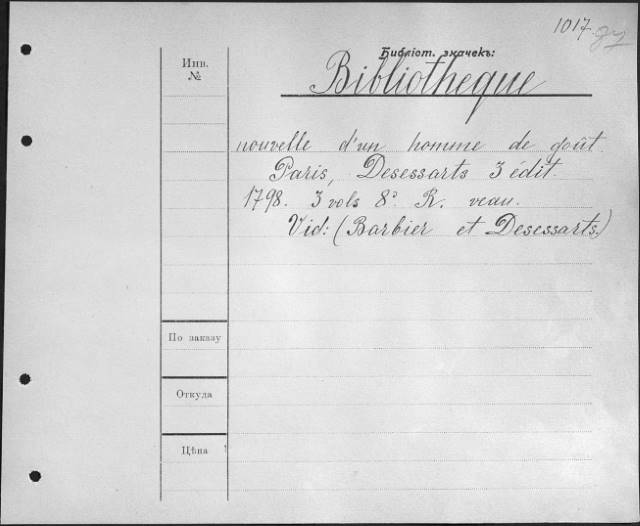 1017
Библіот. значекъ:
Инв.
№
Bibliotheque
nouvelle d'un homme de goût
Paris, Desessarts 3 édit
1798. 3 vols 8º. R. veau.
Vid: (Barbier et Desessarts)
По заказу
Откуда
Цѣна